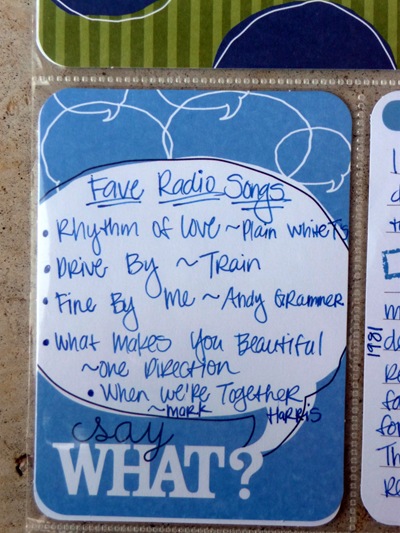 Fave Radio Songs
• Rhythm of Love ~ Plain White T's
• Drive By ~ Train
• Fine By Me ~ Andy Grammer
• What Makes You Beautiful
~ One Direction
• When We're Together
~ Mark Harris
say
WHAT?
1981